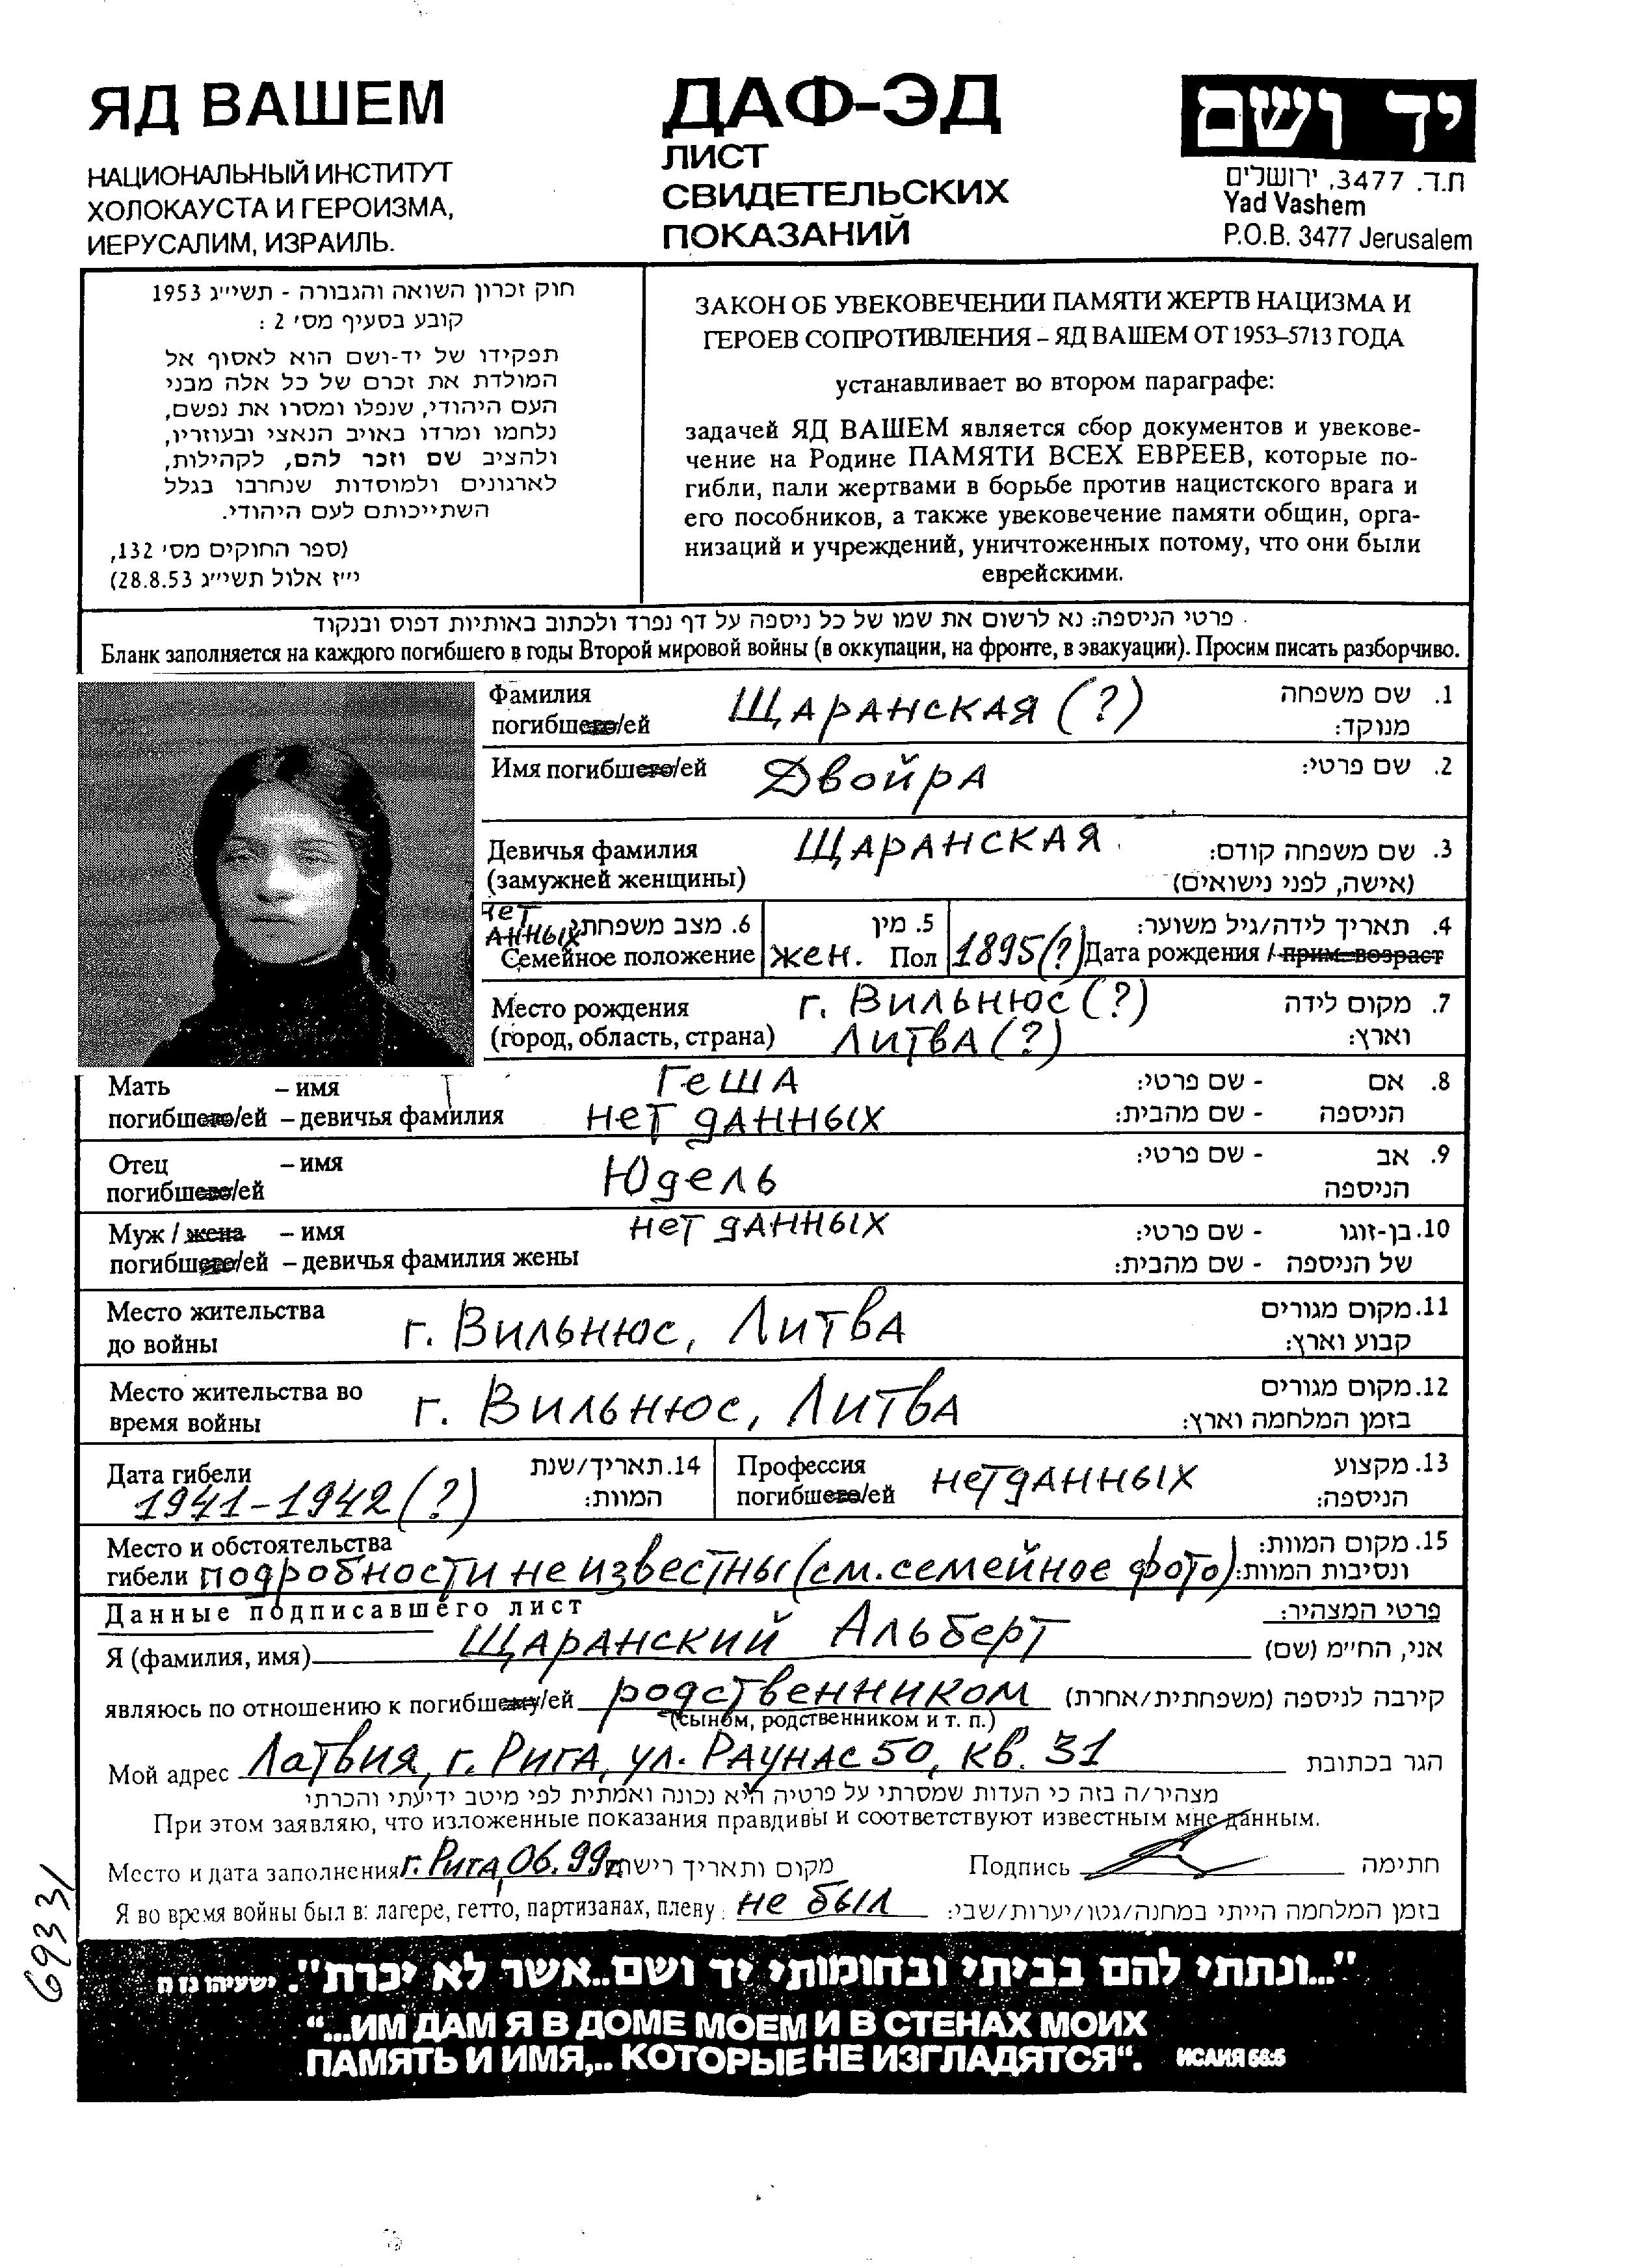 ЯД ВАШЕМ
НАЦИОНАЛЬНЫЙ ИНСТИТУТ
ХОЛОКАУСТА И ГЕРОИЗМА,
ИЕРУСАЛИМ, ИЗРАИЛЬ.
ДАФ-ЭД
ЛИСТ
СВИДЕТЕЛЬСКИХ
ПОКАЗАНИЙ
יד ושם
ת.ד. 3477, ירושלים
Yad Vashem
P.O.B. 3477 Jerusalem
חוק זכרון השואה והגבורה - תשי״ג 1953
קובע בסעיף מס׳ 2 :
תפקידו של יד-ושם הוא לאסוף אל
המולדת את זכרם של כל אלה מבני
העם היהודי, שנפלו ומסרו את נפשם,
נלחמו ומרדו באויב הנאצי ובעוזריו,
ולהציב שם וזכר להם, לקהילות,
לארגונים ולמוסדות שנחרבו בגלל
השתייכותם לעם היהודי.
(ספר החוקים מס׳ 132,
י״ז אלול תשי״ג 28.8.53)
ЗАКОН ОБ УВЕКОВЕЧЕНИИ ПАМЯТИ ЖЕРТВ НАЦИЗМА И
ГЕРОЕВ СОПРОТИВЛЕНИЯ – ЯД ВАШЕМ ОТ 1953–5713 ГОДА
устанавливает во втором параграфе:
задачей ЯД ВАШЕМ является сбор документов и увекове-
чение на Родине ПАМЯТИ ВСЕХ ЕВРЕЕВ, которые по-
гибли, пали жертвами в борьбе против нацистского врага и
его пособников, а также увековечение памяти общин, орга-
низаций и учреждений, уничтоженных потому, что они были
еврейскими.
פרטי הניספה: נא לרשום את שמו של כל ניספה על דף נפרד ולכתוב באותיות דפוס ובנקוד
Бланк заполняется на каждого погибшего в годы Второй мировой войны (в оккупации, на фронте, в эвакуации). Просим писать разборчиво.
Фамилия ЩАРАНСКАЯ (?) 1. שם משפחה
погибшего/ей מנוקד:
Имя погибшего/ей Двойра 2. שם פרטי:
Девичья фамилия ЩАРАНСКАЯ 3. שם משפחה קודם:
(замужней женщины) (אישה, לפני נישואים)
нет данных 6. מצב משפחתי: 5. מין 4. תאריך לידה/גיל משוער:
Семейное положение жен. Пол 1895(?) Дата рождения / прим. возраст
Место рождения г. Вильнюс (?) 7. מקום לידה
(город, область, страна) Литва (?) וארץ:
Мать – имя Геша 8. אם - שם פרטי:
погибшего/ей – девичья фамилия нет данных הניספה - שם מהבית:
Отец – имя Юдель 9. אב - שם פרטי:
погибшего/ей הניספה
Муж / жена – имя нет данных 10. בן-זוגו - שם פרטי:
погибшего/ей – девичья фамилия жены של הניספה - שם מהבית:
Место жительства г. Вильнюс, Литва 11. מקום מגורים
до войны קבוע וארץ:
Место жительства во г. Вильнюс, Литва 12. מקום מגורים
время войны בזמן המלחמה וארץ:
Дата гибели 14. תאריך/שנת Профессия нет данных 13. מקצוע
1941-1942 (?) המוות: погибшего/ей הניספה:
Место и обстоятельства 15. מקום המוות:
гибели подробности не известны (см. семейное фото) ונסיבות המוות:
Данные подписавшего лист פרטי המצהיר:
Я (фамилия, имя) Щаранский Альберт אני, החי״מ (שם)
являюсь по отношению к погибшему/ей родственником קירבה לניספה (משפחתית/אחרת)
(сыном, родственником и т. п.)
Мой адрес Латвия, г. Рига, ул. Раунас 50, кв. 31 הגר בכתובת
מצהיר/ה בזה כי העדות שמסרתי על פרטיה היא נכונה ואמתית לפי מיטב ידיעתי והכרתי
При этом заявляю, что изложенные показания правдивы и соответствуют известным мне данным.
Место и дата заполнения г. Рига, 06.99г מקום ותאריך רישום Подпись חתימה
Я во время войны был в: лагере, гетто, партизанах, плену: не был בזמן המלחמה הייתי במחנה/גטו/יערות/שבי:
69331
"...ונתתי להם בביתי ובחומותי יד ושם..אשר לא יכרת". ישעיהו נו ה
“...ИМ ДАМ Я В ДОМЕ МОЕМ И В СТЕНАХ МОИХ
ПАМЯТЬ И ИМЯ,.. КОТОРЫЕ НЕ ИЗГЛАДЯТСЯ“. ИСАИЯ 56:5